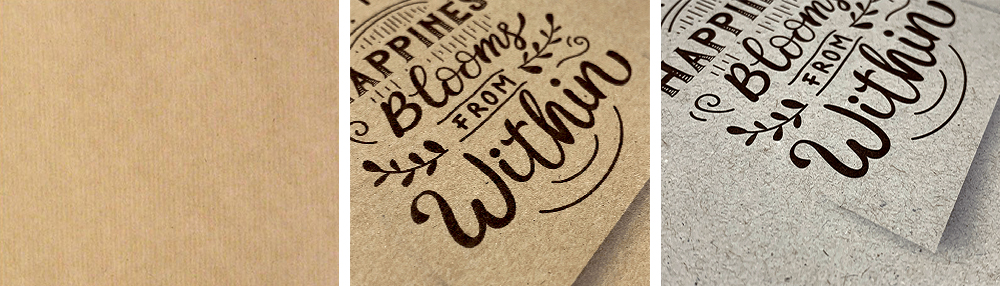 HAPPINESS
Blooms
FROM
Within
HAPPI
Blooms
FROM
Within